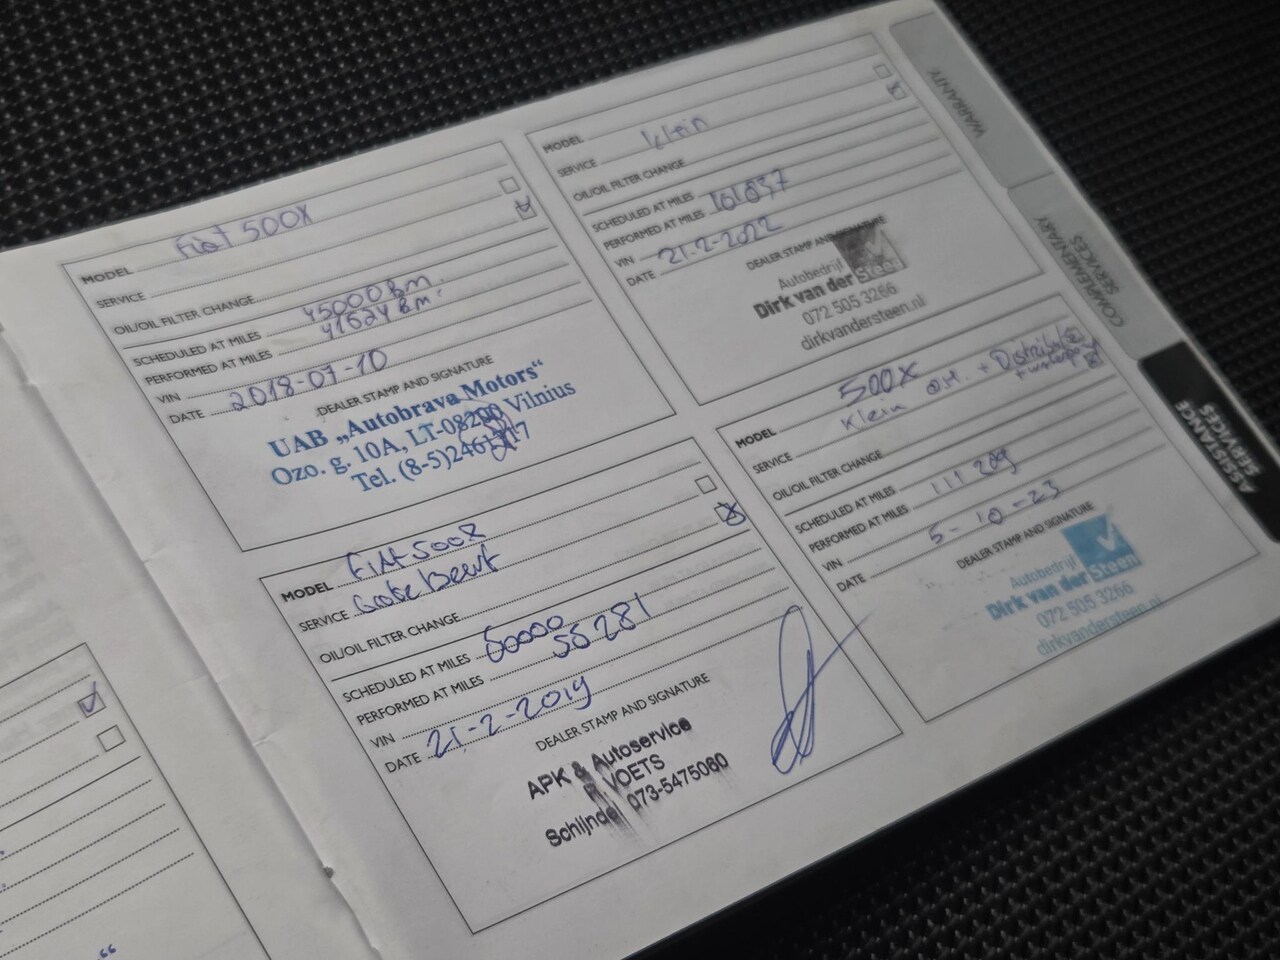 MODEL Fiat 500X
SERVICE
OIL/OIL FILTER CHANGE
SCHEDULED AT MILES 45000 km.
PERFORMED AT MILES 41624 km.
VIN
DATE 2018-07-10
DEALER STAMP AND SIGNATURE
UAB „Autobrava Motors“
Ozo. g. 10A, LT-08200 Vilnius
Tel. (8-5)2461717
MODEL Fiat 500X
SERVICE Grote Beurt
OIL/OIL FILTER CHANGE
SCHEDULED AT MILES 60000
PERFORMED AT MILES 55281
VIN
DATE 21-2-2019
DEALER STAMP AND SIGNATURE
APK & Autoservice
VOETS
Schijndel 073-5475080
MODEL
SERVICE klein
OIL/OIL FILTER CHANGE
SCHEDULED AT MILES
PERFORMED AT MILES 101837
VIN
DATE 21-2-2022
DEALER STAMP AND SIGNATURE
Autobedrijf
Dirk van der Steen
072 505 3266
dirkvandersteen.nl
MODEL 500X
SERVICE Klein O.H. + Distributie
OIL/OIL FILTER CHANGE
SCHEDULED AT MILES
PERFORMED AT MILES 111209
VIN
DATE 5-10-23
DEALER STAMP AND SIGNATURE
Autobedrijf
Dirk van der Steen
072 505 3266
dirkvandersteen.nl
WARRANTY
COMPLEMENTARY
SERVICES
ASSISTANCE
SERVICES